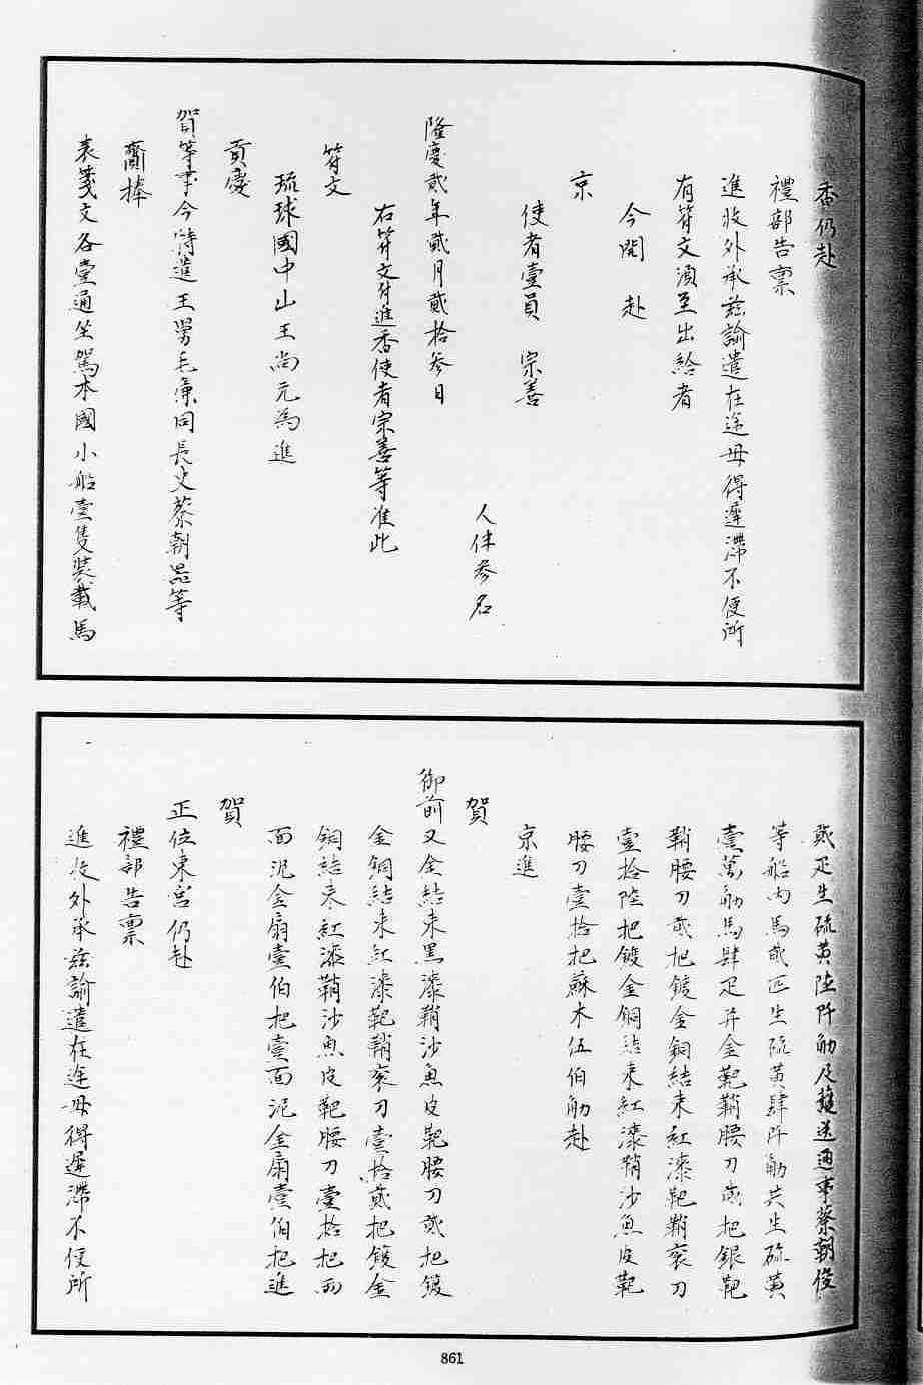 香仍赴
禮部告禀
進收外承玆諭遣在途毋得遲滯不便所
有符文湏至出給者
今開　赴
京
使者壹員　宗善
人伴参名
隆慶貳年貳月貳拾参日
右符文付進香使者宗善等准此
符文
琉球國中山王尚元為進
貢慶
賀等事今特遣王舅毛廉同長史蔡朝器等
齎捧
表箋文各壹通坐駕本國小船壹隻裝載馬
貳疋生硫黄陸阡觔及護送通事蔡朝俊
等船内馬貳匹生硫黄肆阡觔共生硫黄
壹萬觔馬肆疋并金靶鞘腰刀貳把銀靶
鞘腰刀貳把鍍金銅結束紅漆靶鞘衮刀
壹拾陸把鍍金銅結束紅漆鞘沙魚皮靶
腰刀壹拾把蘇木伍伯觔赴
京進
賀
御前又金結束黑漆鞘沙魚皮靶腰刀貳把鍍
金銅結束紅漆靶鞘衮刀壹拾貳把鍍金
銅結束紅漆鞘沙魚皮靶腰刀壹拾把兩
面泥金扇壹伯把壹面泥金扇壹伯把進
賀
正位東宮仍赴
禮部告禀
進收外承玆諭遣在途毋得遲滯不便所
861